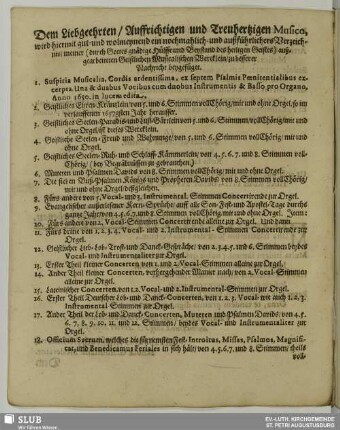 Dem Liebgeehrten / Auffrichtigen und Treuhertzigen Musico,
wird hiermit gut-und wolmeynend ein nochmahlich-und außführlichers Verzeich-
nis meiner (durch Gottes gnädige Hülffe und Beystand des heiligen Geistes) auß-
gearbeiteten Geistlichen Musicalischen Wercklein / zu besserer
Nachricht beygefüget.
1. Suspiria Musicalia, Cordis ardentissima, ex septem Psalmis Pœnitentialibus ex-
cerpta, Una & duabus Vocibus cum duobus Instrumentis & Basso pro Organo,
Anno 1650. in lucem edita.
2. Geistliches Ehren-Kräntzlein / von 5. und 6. Stimmen vollChörig / mir und ohne Orgel / so im
verlauffenen 1657sten Jahr herausser.
3. Geistlicher Seelen-Paradis- und Lust-Gärtlein / von 5. und 6. Stimmen / vollChörig / mit und
ohne Orgel / ist dieses Wercklein.
4. Geistliche Seelen-Freud und Wohnung / von 5. und 6. Stimmen vollChörig / mir und
ohne Orgel.
5. Geistliches Seelen-Ruh-und Schlaff-Kämmerlein / von 4. 5. 6. 7. und 8. Stimmen voll-
Chörig / (bey Begräbnüssen zu gebrauchen.)
6. Muteten und Psalmen Davids / von 8. Stimmen, vollChörig / mir und ohne Orgel.
7. Des sei en Buß-Psalmen Königs und Propheten Davids / von 8. Stimmen vollChörig /
mir und ohne Orgel / deßgleichen.
8. Fürs andere von 1. Vocal- und 3. Instrumental. Stimmen Concertirende zur Orgel.
9. Evangelischer außerlesener Kern-Sprüche / auff alle Son- Feh- und Apostel-Tage durchs
gantze Jahr / von 4. 5. 6. 7. und 8. Stimmen vollChörig / mir und ohne Orgel.
10. Fürs andere von 2. Vocal-Stimmen Concertirende allein zur Orgel. Und dann
11. Fürs dritte von 1. 2. 3. 4. Vocal- und Instrumental- Stimmen Concertirende zur
Orgel.
12. Geistlicher Lieb- Lob- Trost- und Danck- Gespräche / von 2. 3. 4. 5. und 6. Stimmen beydes
Vocal- und Instrumentaliter zur Orgel.
13. Erster Theil kleiner Concerten, von 1. und 2. Vocal-Stimmen allein zur Orgel.
14. Ander Theil kleiner Concerten, vorhergehender Manier nach / von 2. Vocal-Stimmen
alleine zur Orgel.
15. Lateinischer Concerten, von 1. 2. Vocal- und 2. Instrumental-Stimmen zur Orgel.
16. Erster Theil Deutscher Lob- und Danck- Concerten, von 1. 2. 3. Vocal- wie auch 1. 2. 3.
Instrumental Stimmen zur Orgel.
17. Ander Theil der Lob- und Danck- Concerten, Muteten und Psalmen Davids / von 4. 5.
6. 7. 8. 9. 10. 11. und 12. Stimmen / beydes Vocal- und Instrumentaliter zur
Orgel.
18. Officium Sacrum, welches die fürnemsten Fest-Introitus, Missas, Psalmos, Magnifi-
cat, und Benedicamus Feriales in sich hält / von 4. 5. 6. 7. und 8. Stimmen theils
voll-
SLUB
Wir führen Wissen.
EV.-LUTH. KIRCHGEMEINDE
ST. PETRI AUGUSTUSBURG